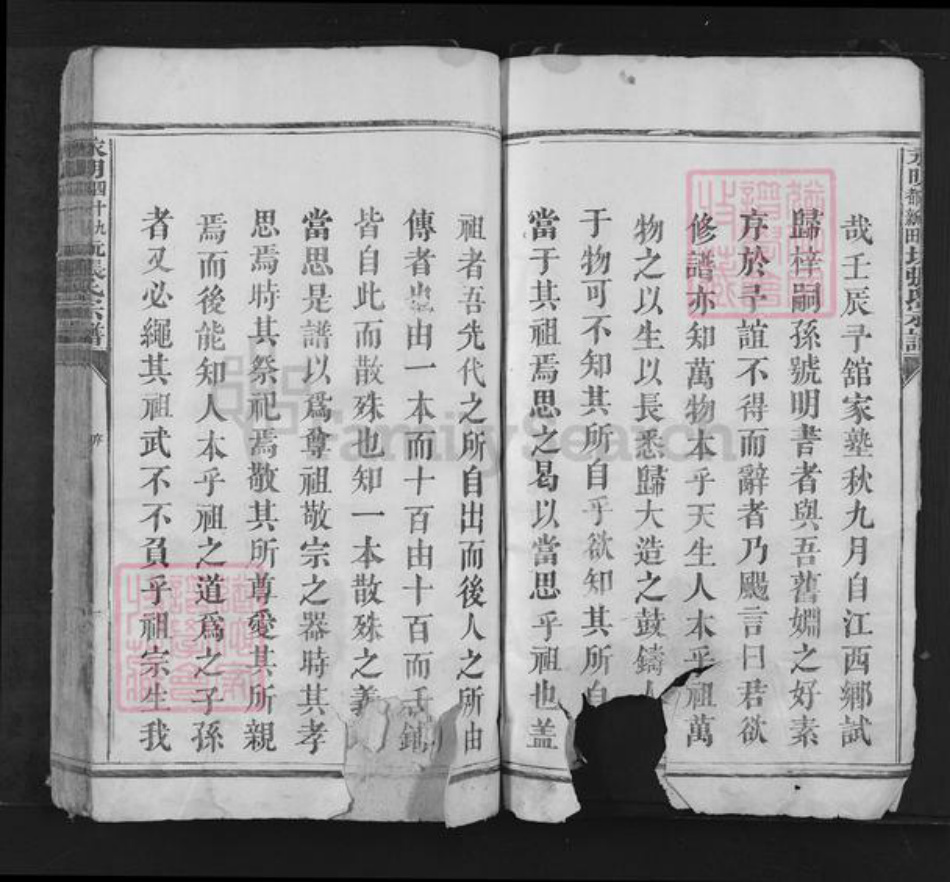 哉壬辰予舘家塾秋九月自江西鄉試
歸梓嗣孫號明書者與吾舊姻之好素
序於予誼不得而辭者乃颺言曰君欲
修譜亦知萬物本乎天生人本乎祖萬
物之以生以長悉歸大造之鼓鑄人
于物可不知其所自乎欲知其所自
當于其祖焉思之曷以當思乎祖也盖
祖者吾先代之所自出而後人之所由
傳者也由一本而十百由十百而千
皆自此而散殊也知一本散殊之義
當思是譜以爲尊祖敬宗之器時其孝
思焉時其祭祀焉敬其所尊愛其所親
焉而後能知人本乎祖之道爲之子孫
者又必繩其祖武不不負乎祖宗生我
張氏宗譜
FamilySearch